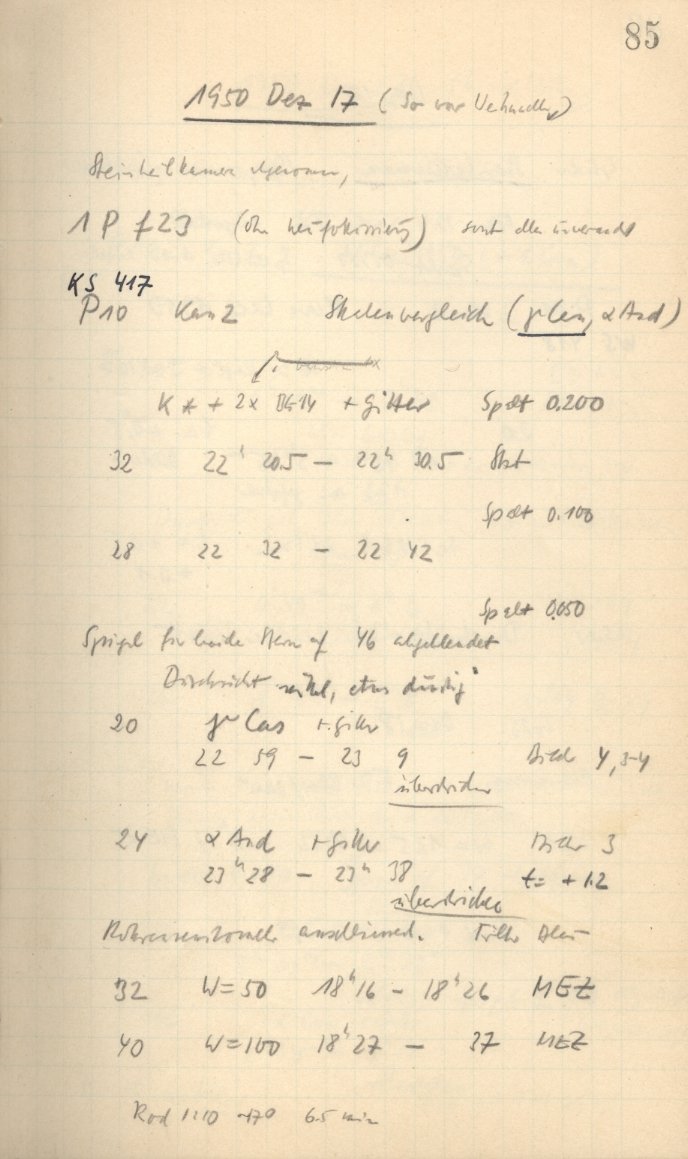 85
1950 Dez 17 (
Steinheilkamera abgenommen,
1 P f 23 (ohne Neufokussierung) sonst alles unverändert
KS 417
P10 Kam 2 Skalenvergleich (γ Cas, α And)
K * + 2x BG14 + Gitter Spalt 0.200
32 22h 20.5 – 22h 30.5 Skt
Spalt 0.100
28 22 32 – 22 42
Spalt 0.050
Spiegel für beide Sterne auf 46 abgeblendet
Durchsicht mittel, etwas dunstig
20 γ Cas + Gitter
22 59 – 23 9 Bild 4, 3-4
24 α And + Gitter Bilder 3
23h 28 – 23h 38 t = + 1.2
Röhrensensitometer anschliessend. Filter Blau
32 W = 50 18h16 – 18h26 MEZ
40 W = 100 18h27 – 37 MEZ
Rod 1:10 6.5 min